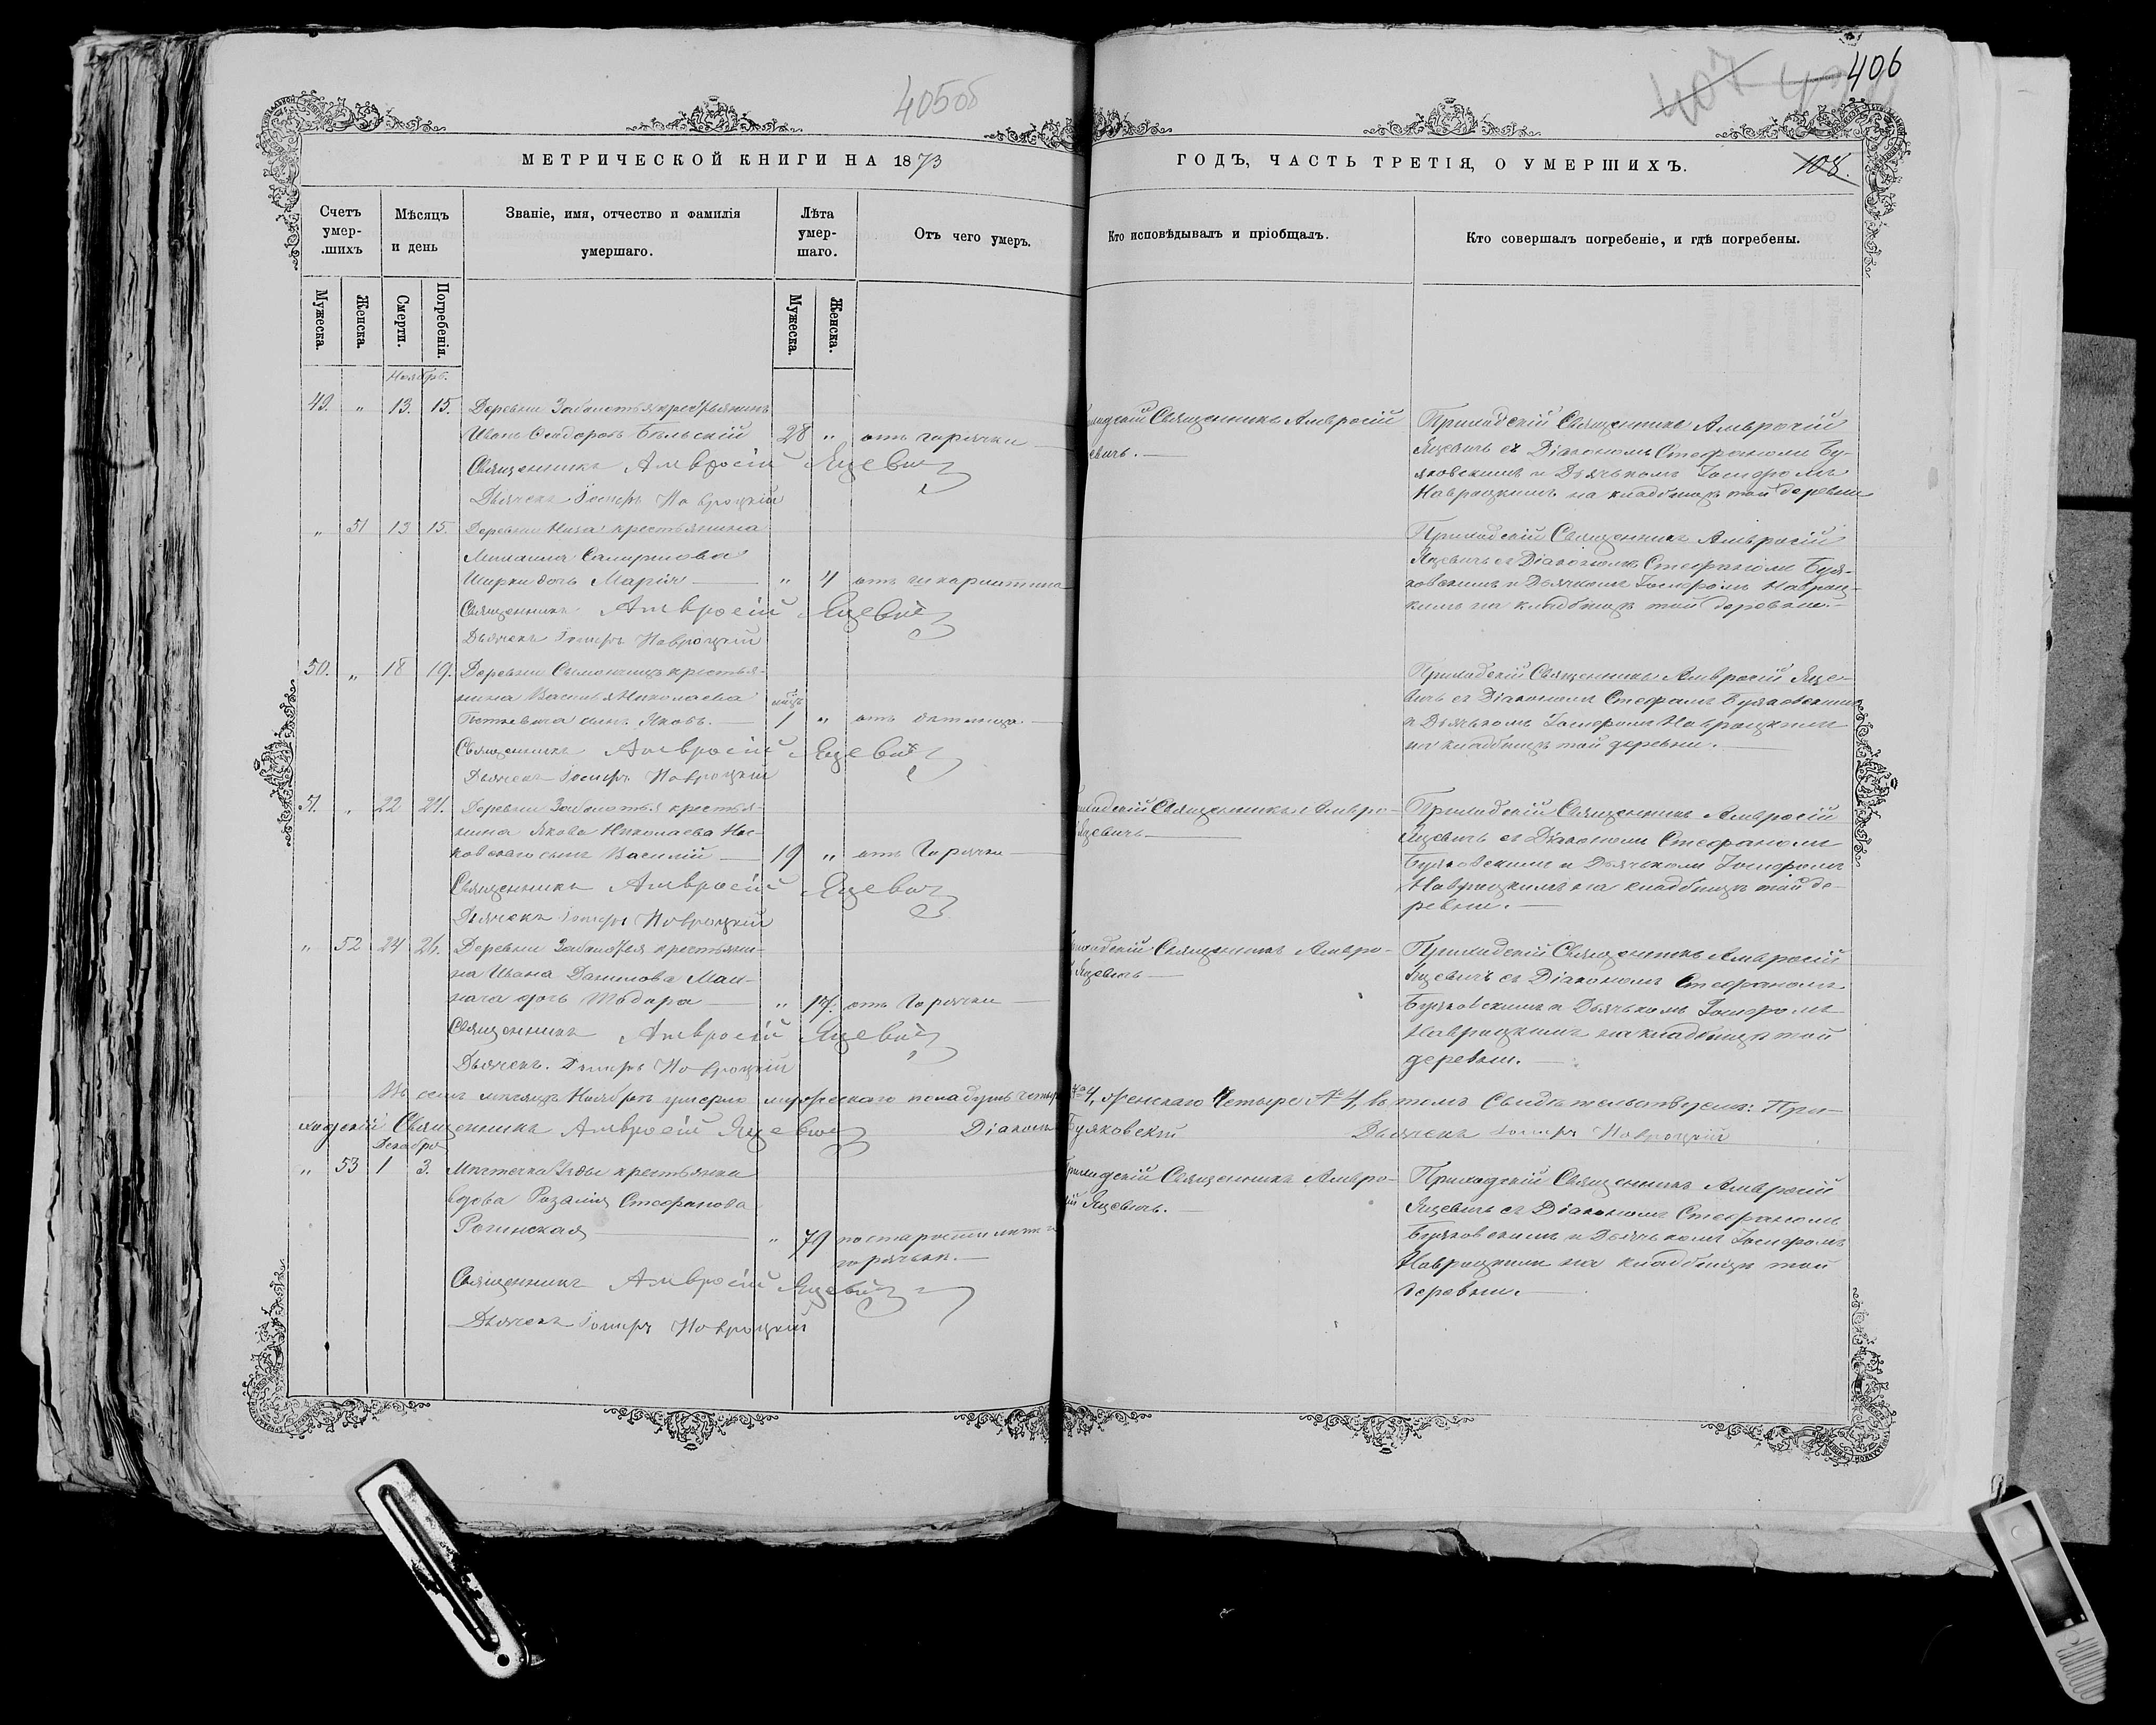 405об
407
406
МЕТРИЧЕСКОЙ КНИГИ НА 1873
ГОДЪ, ЧАСТЬ ТРЕТІЯ, О УМЕРШИХЪ.
108.
Счетъ умер-
.шихъ
Мѣсяцъ
и день
Званіе, имя, отчество и фамилія
умершаго.
Лѣта
умер-
шаго.
Отъ чего умеръ.
Кто исповѣдывалъ и пріобщалъ.
Кто совершалъ погребеніе, и гдѣ погребены.
Мужеска.
Женска.
Смерти.
Погребенія.
Мужеска.
Женска.
Ноябрь.
49. " 13. 15. Деревни Заболотья крестьянинъ
Иванъ Ѳеодоровъ Бѣльскій 28 " отъ горячки
Священникъ Амвросій Яцевичъ
Дьячекъ Іосифъ Навроцкій
Священникъ Амвросій
евичъ.
Приходскій Священникъ Амвросій
Яцевичъ съ Діакономъ Стефаномъ Бу-
яковскимъ и Дьячькомъ Іосифомъ
Навроцкимъ на кладбищѣ той деревни
" 51 13 15. Деревни крестьянина
Михаила
дочь Марія " 4 отъ
Священникъ Амвросій Яцевичъ
Дьячекъ Іосифъ Навроцкій
Приходскій Священникъ Амвросій
Яцевичъ съ Діакономъ Стефаномъ Буя-
ковскимъ и Дьячкомъ Іосифомъ Навроц-
кимъ на кладбищѣ той деревни.
50. " 18 19. Деревни крестья-
нина Василья Николаева
сынъ Яковъ. 1 " отъ
Священникъ Амвросій Яцевичъ
Дьячекъ Іосифъ Навроцкій
Приходскій Священникъ Амвросій Яце-
вичъ съ Діакономъ Стефаномъ Буяковскимъ
и Дьячькомъ Іосифомъ Навроцкимъ
на кладбищѣ той деревни.
51. " 22 24. Деревни Заболотья крестья-
нина Якова Николаева Нос-
ковскаго сынъ Василій 19 " отъ Горячки
Священникъ Амвросій Яцевичъ
Дьячекъ Іосифъ Навроцкій
Священникъ Амвро-
Яцевичъ
Приходскій Священникъ Амвросій
Яцевичъ съ Діакономъ Стефаномъ
Буяковскимъ и Дьячькомъ Іосифомъ
Навроцкимъ на кладбищѣ той де-
ревни.
" 52 24 26. Деревни Заболотья крестьяни-
на Ивана Данилова
дочь Тодора " 17. отъ Горячки
Священникъ Амвросій Яцевичъ
Дьячекъ. Іосифъ Навроцкій
Священникъ Амвро-
Яцевичъ
Приходскій Священникъ Амвросій
Яцевичъ съ Діакономъ Стефаномъ
Буяковскимъ и Дьячькомъ Іосифомъ
Навроцкимъ на кладбищѣ той
деревни.
Въ семъ мѣсяцѣ Ноябрѣ умерло мужескаго пола душъ 4, женскаго Четыре № 4, въ томъ Свидѣтельствуемъ: При-
ходскій Священникъ Амвросій Яцевичъ Діаконъ Буяковскій Дьячекъ Іосифъ Навроцкій
Декабрь
" 53 1 3. Мѣстечка Узды крестьянка
вдова Розалія Стефанова
Рогинская " 79
горячки.
Священникъ Амвросій Яцевичъ
Дьячекъ Іосифъ Навроцкій
Приходскій Священникъ Амвро-
сій Яцевичъ.
Приходскій Священникъ Амвросій
Яцевичъ съ Діакономъ Стефаномъ
Буяковскимъ и Дьячькомъ Іосифомъ
Навроцкимъ на кладбищѣ той
деревни.